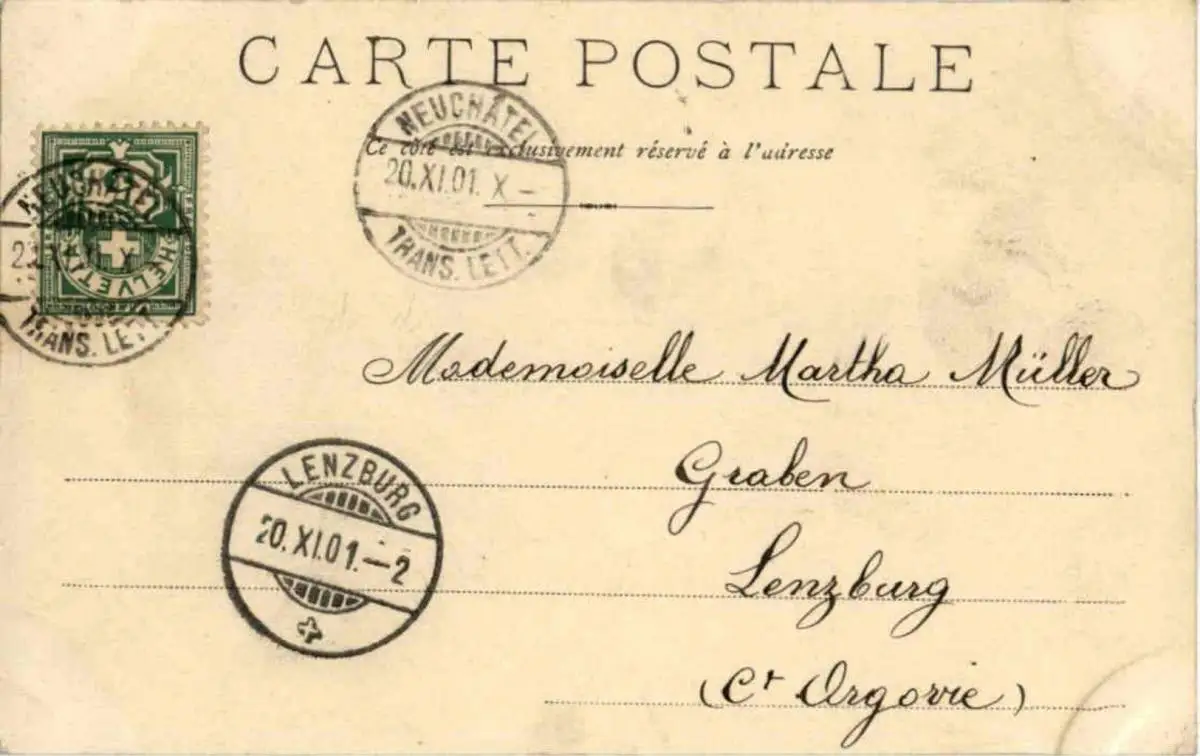 CARTE POSTALE
Ce côté est exclusivement réservé à l'adresse
NEUCHÂTEL
20.XI.01. X –
TRANS. LETT.
NEUCHÂTEL
X –
TRANS. LETT.
HELVETIA
Mademoiselle Martha Müller
Graben
Lenzburg
(Ct Argovie)
LENZBURG
20.XI.01.–2